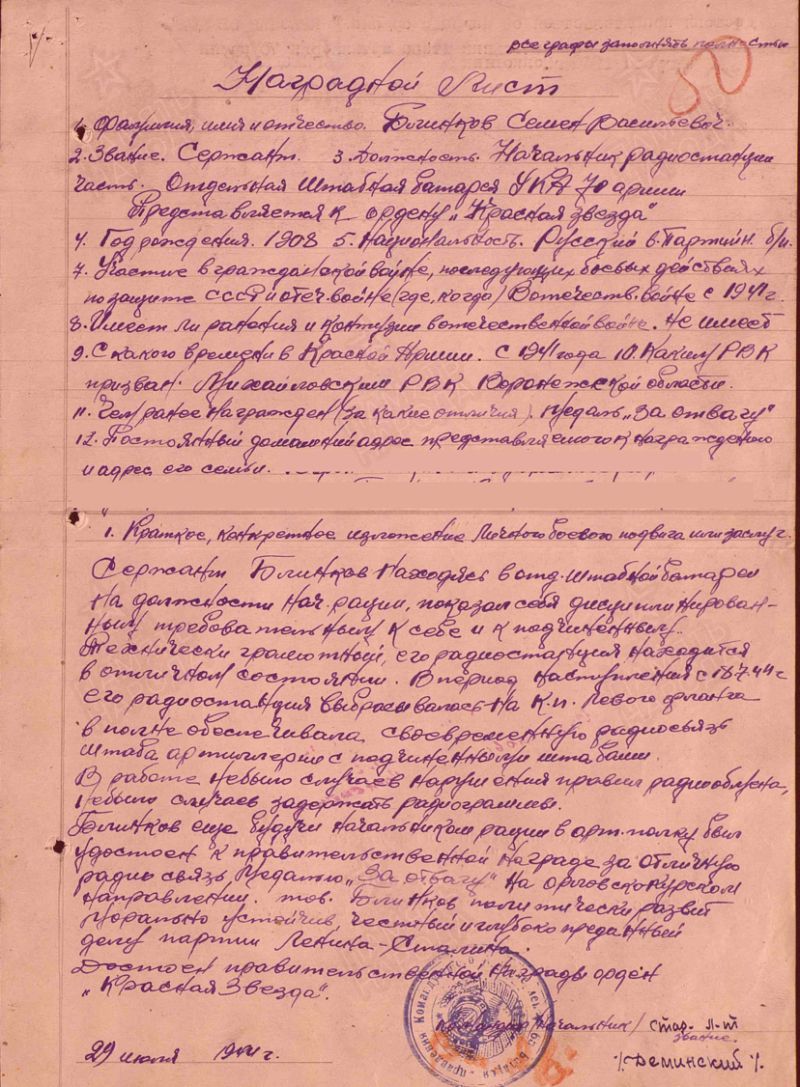 все графы заполнять полностью
50
Наградной Лист
1. Фамилия, имя и отчество. Блинков Семен Васильевич
2. Звание. Сержант. 3. Должность. Начальник радиостанции
часть. Отдельная Штабная батарея УКА 70 армии
Представляется к ордену „Красная звезда“
4. Год рождения. 1908 5. Национальность. Русский 6. Партийн. б/п.
7. Участие в гражданской войне, последующих боевых действиях
по защите СССР и отеч. войне (где, когда) В отечеств. войне с 1941 г.
8. Имеет ли ранения и контузии в отечественной войне. Не имеет
9. С какого времени в Красной Армии. С 1941 года 10. Каким РВК
призван. Михайловским РВК Воронежской области.
11. Чем ранее награжден (за какие отличия). Медаль „За отвагу“
12. Постоянный домашний адрес представляемого к награждению
и адрес его семьи.
1. Краткое, конкретное изложение личного боевого подвига или заслуг.
Сержант Блинков находясь в отд. штабной батареи
на должности нач. рации, показал себя дисциплинирован-
ным, требовательным к себе и к подчиненным.
Технически грамотный, его радиостанция находится
в отличном состоянии. В период наступления с 18.7.44 г
его радиостанция выбрасывалась на К.п. левого фланга
в полне обеспечивала своевременную радиосвязь
штаба артиллерии с подчиненными штабами.
В работе небыло случаев нарушения правил радиообмена,
небыло случаев задержать радиограммы.
Блинков еще будучи начальником рации в арт. полку был
удостоен к правительственной награде за отличную
радио связь Медалью „За отвагу“ на орловско курском
направлении. тов. Блинков политически развит
морально устойчив, честный и глубоко преданный
делу партии Ленина-Сталина.
Достоен правительственной награды орден
„Красная Звезда“.
Командир /начальник/ стар. л-т
звание.
29 июля 1944 г. /Деминский/.